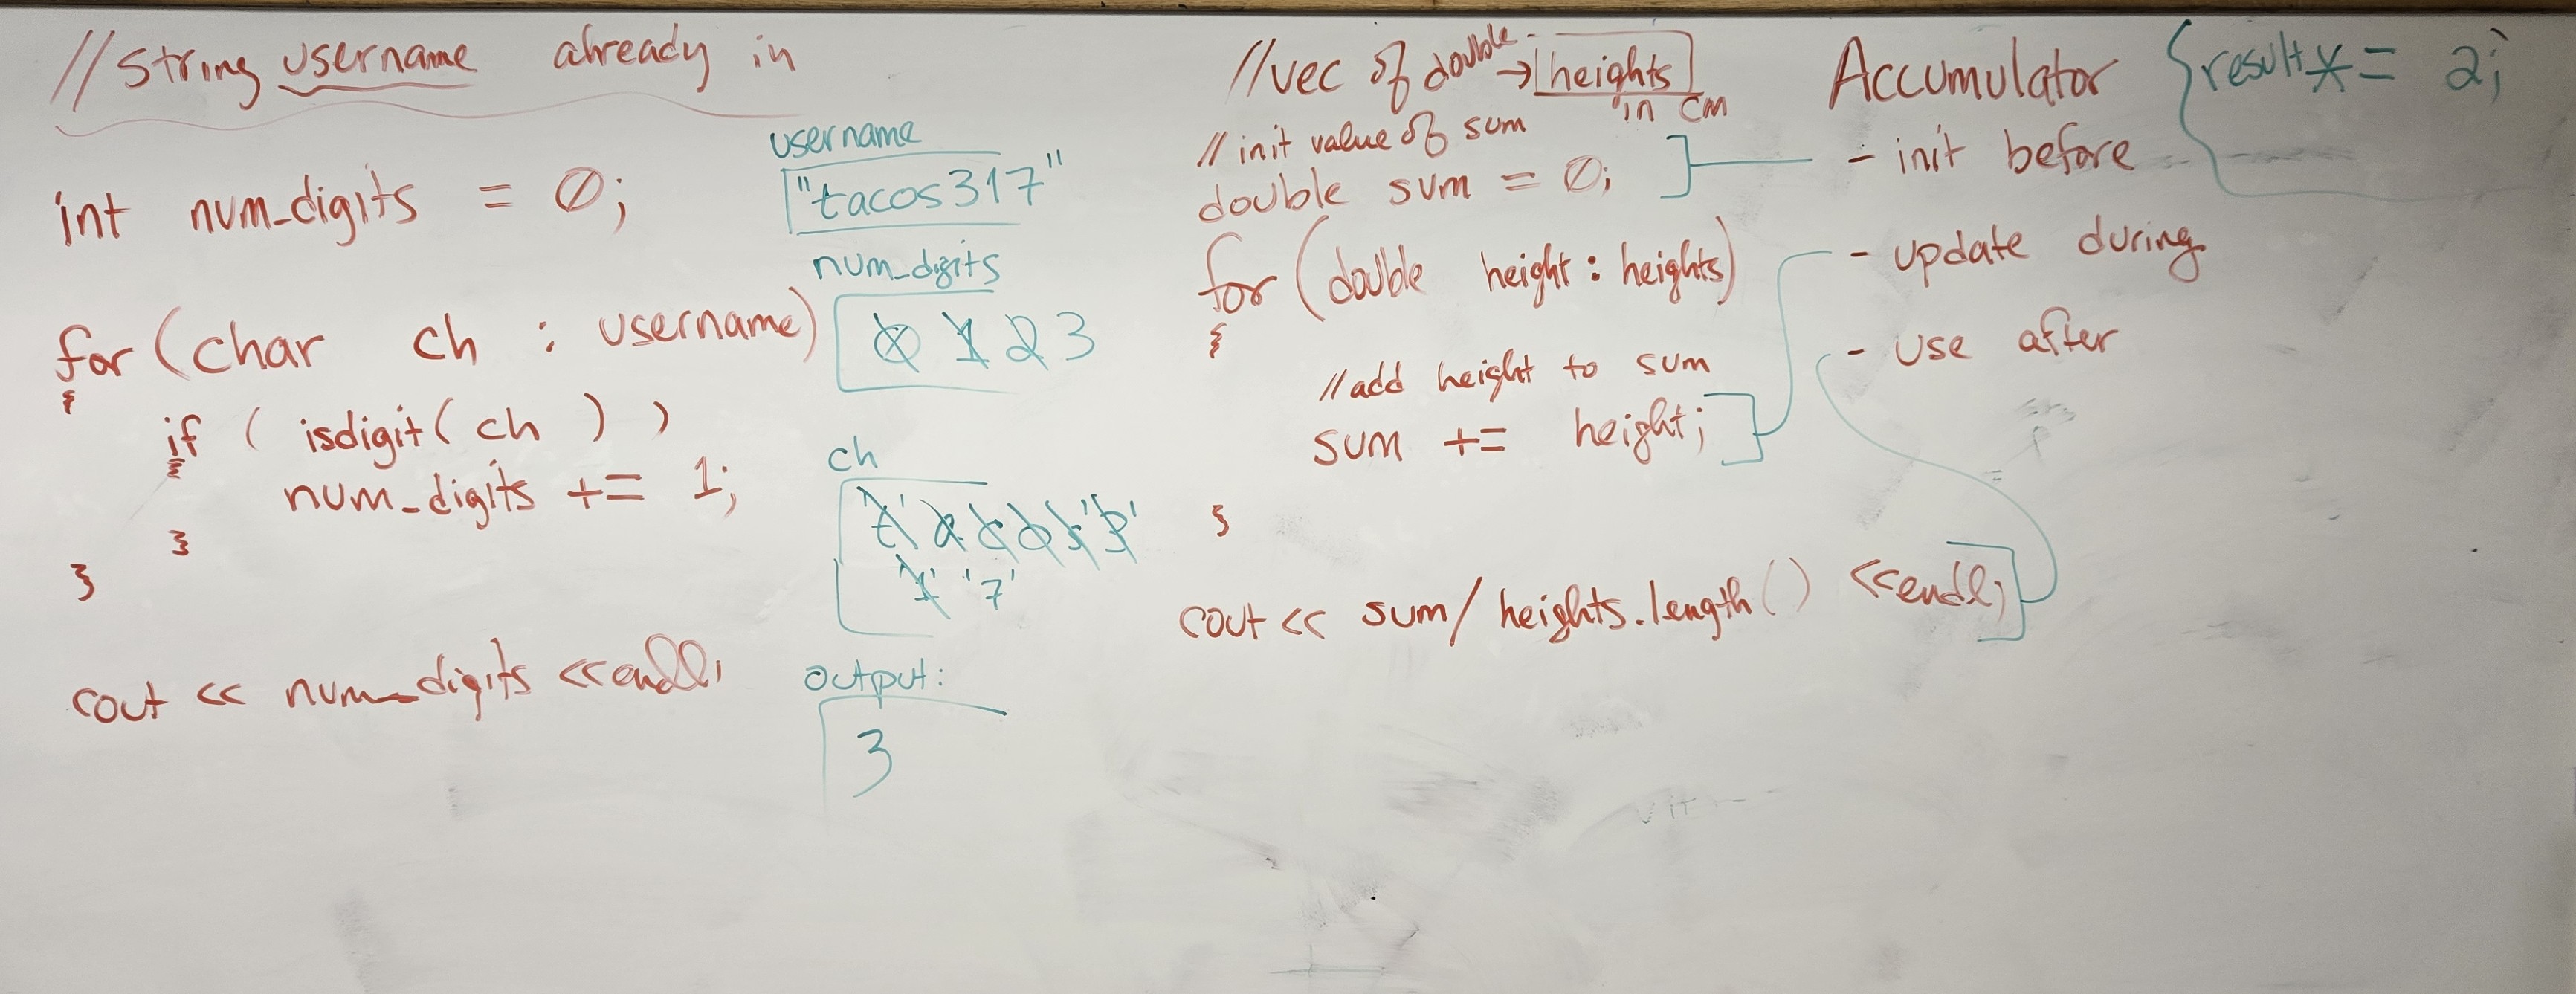 //String username already in
int num_digits = 0;
for (char ch : username)
{
if ( isdigit( ch ) )
{
num_digits += 1;
}
}
cout << num_digits <<endl;
username
"tacos317"
num_digits
0 1 2 3
ch
't' a c o s '3'
'1' '7'
output:
3
//vec of double → heights
in cm
// init value of sum
double sum = 0;
for (double height : heights)
{
//add height to sum
sum += height;
}
cout << sum / heights.length() <<endl;
Accumulator
- init before
- update during
- use after
result *= 2;